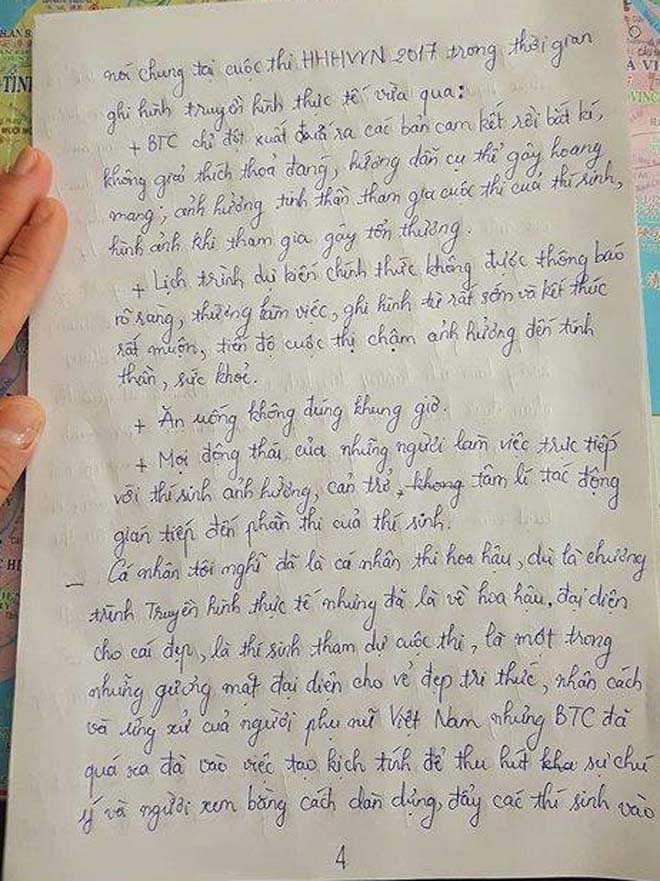 nói chung tại cuộc thi HHHVVN 2017 trong thời gian
ghi hình truyền hình thực tế vừa qua:
+ BTC chỉ đột xuất đưa ra các bản cam kết rồi bất kì,
không giải thích thoả đáng, hướng dẫn cụ thể gây hoang
mang, ảnh hưởng tinh thần tham gia cuộc thi của thí sinh,
hình ảnh khi tham gia gây tổn thương.
+ Lịch trình dự kiến chính thức không được thông báo
rõ ràng, thường làm việc, ghi hình từ rất sớm và kết thúc
rất muộn, tiến độ cuộc thi chậm ảnh hưởng đến tinh
thần, sức khoẻ.
+ Ăn uống không đúng khung giờ.
+ Mọi động thái của những người làm việc trực tiếp
với thí sinh ảnh hưởng, cản trở, không tâm lí tác động
gián tiếp đến phần thi của thí sinh.
- Cá nhân tôi nghĩ đã là cá nhân thi hoa hậu, dù là chương
trình Truyền hình thực tế nhưng đã là về hoa hậu, đại diện
cho cái đẹp, là thí sinh tham dự cuộc thi, là một trong
những gương mặt đại diện cho vẻ đẹp tri thức, nhân cách
và ứng xử của người phụ nữ Việt Nam nhưng BTC đã
quá sa đà vào việc tạo kịch tính để thu hút kha sự chú
ý và người xem bằng cách dàn dựng, đẩy các thí sinh vào
4